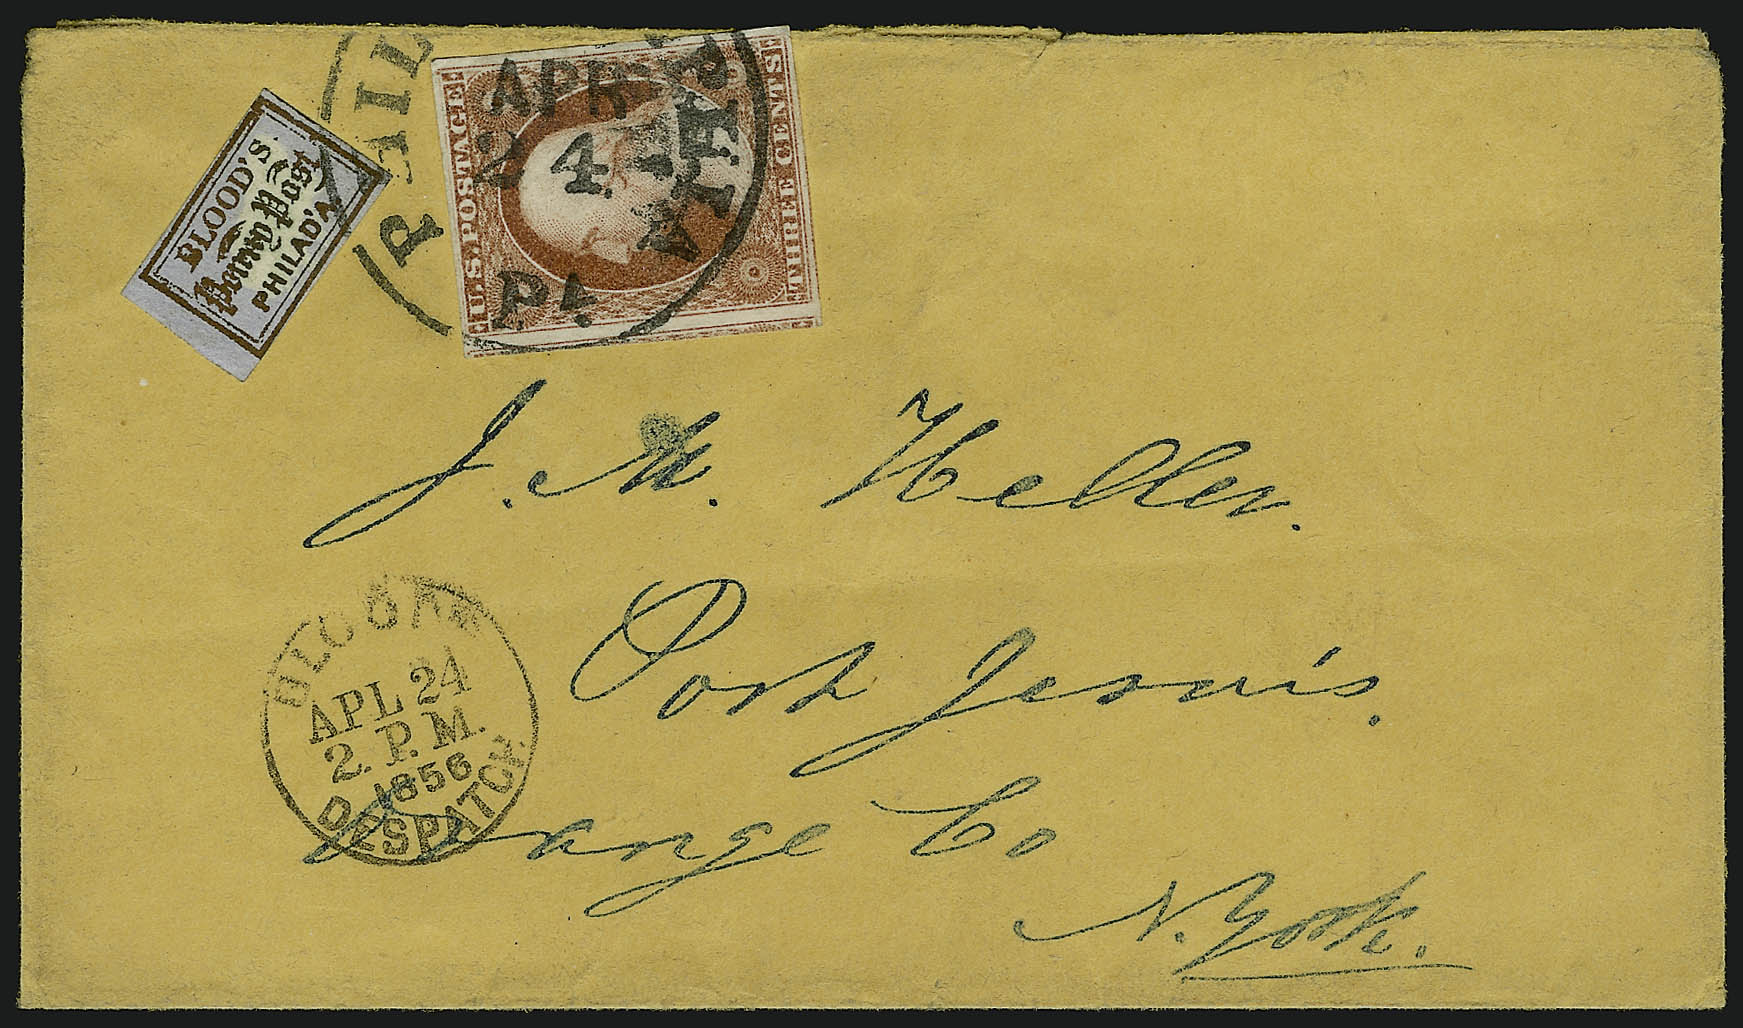 BLOOD'S
Penny Post
PHILAD'A
U.S. POSTAGE
THREE CENTS
PHILADELPHIA
APR
24
Pa.
J. M. Heller.
Port Jervis.
Orange Co
N. York.
BLOOD'S
APL 24
2. P.M.
1856
DESPATCH